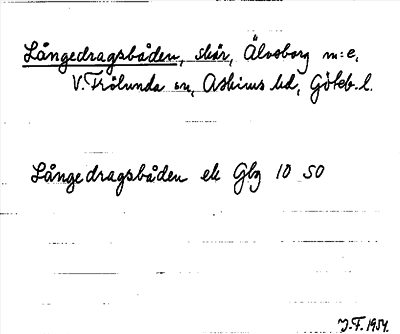 Långedragsbåden, skär, Älvsborg m:e,
V. Frölunda sn, Askims hd, Göteb. l.
Långedragsbåden ek Gbg 10 SO
J.F. 1954.